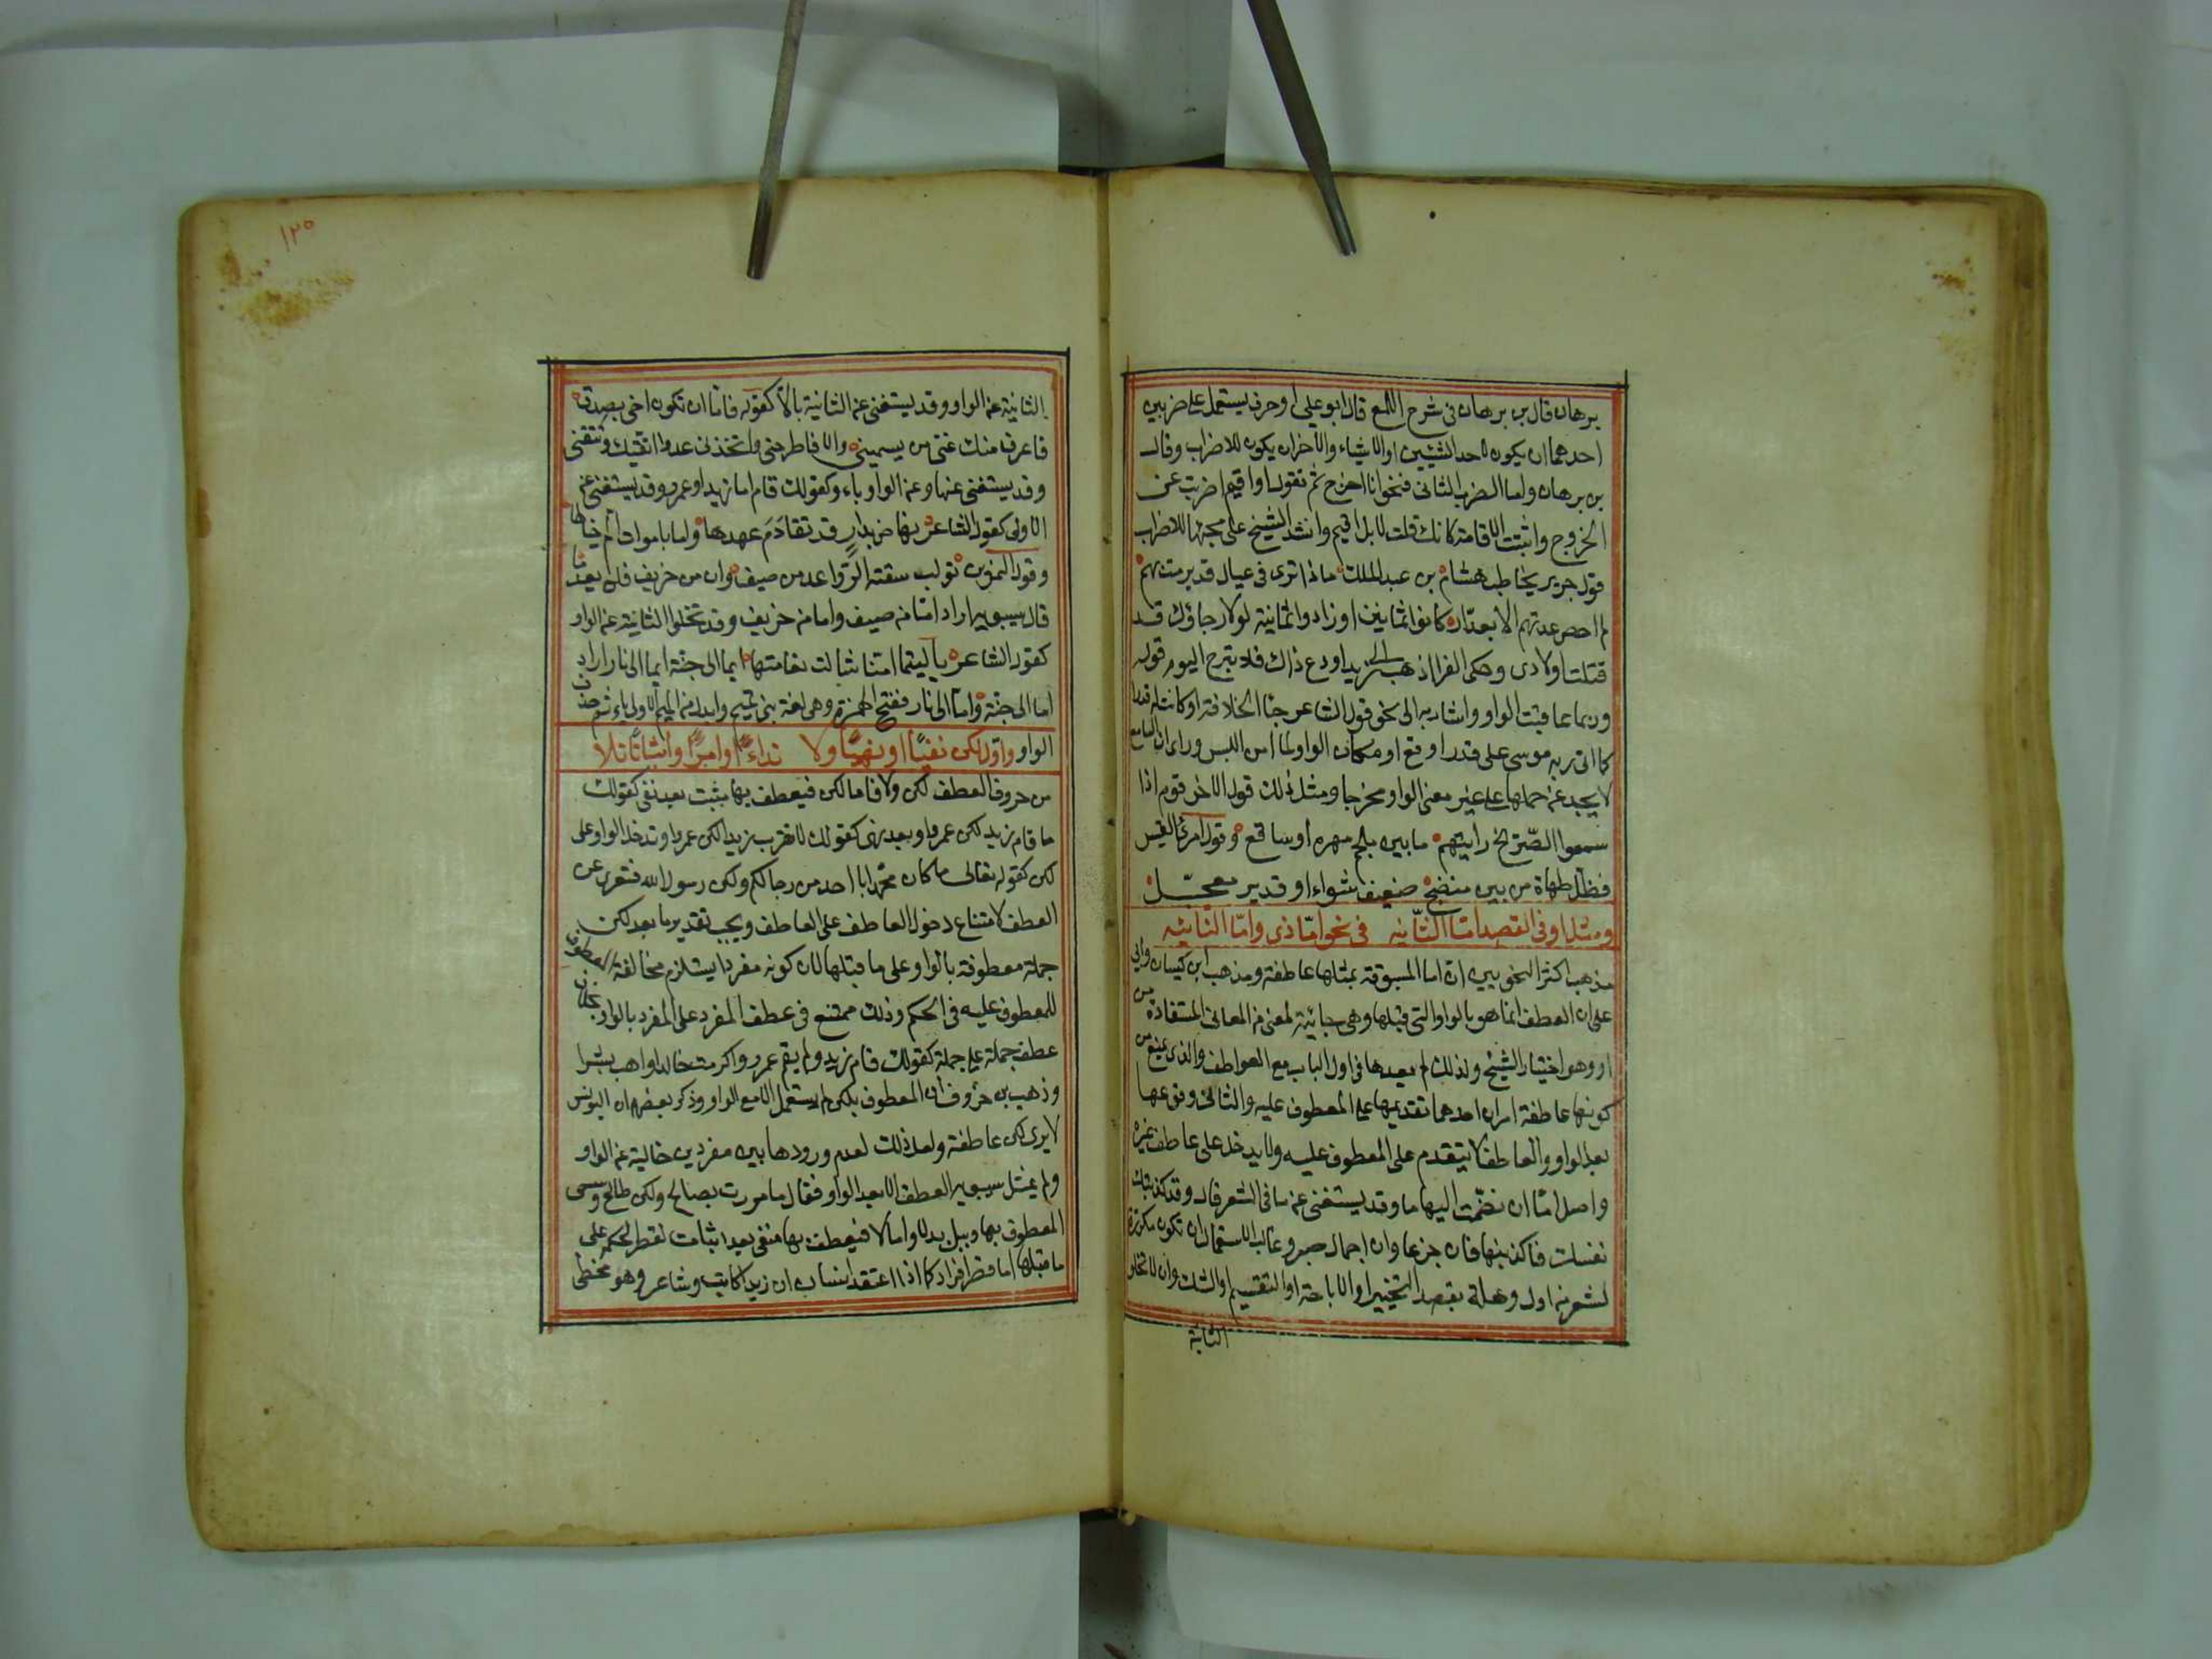 برهان قال بن برهان فى شرح اللمع قال ابو على او حرف يستعمل على ضربين
احدهما ان يكون لاحد الشيئين او الاشياء والاخر ان يكون للاضراب وقال
بن برهان واما الضرب الثانى فنحو انا اخرج ثم تقول او اقيم اضربت عن
الخروج واثبتت الاقامة كانك قلت لا بل اقيم وانشد الشيخ على مجيئها للاضراب
قول جرير يخاطب هشام بن عبد الملك ماذا ترى فى عيال قد برمت بهم
لم احص عدتهم الا بعداد كانوا ثمانين او زادوا ثمانية لولا رجاؤك قد
قتلت اولادى وحكى الفرا اذهب الى زيد او دع ذاك فلا تبرح اليوم قوله
وربما عاقبت الواو واشار به الى نحو قول الشاعر جاء الخلافة او كانت له قدرا
كما اتى ربه موسى على قدر اوقع او مكان الواو لما امن اللبس وراى ان السامع
لا يجد عن حملها على غير معنى الواو مخرجا ومثل ذلك قول الاخر قوم اذا
سمعوا الصريخ رايتهم ما بين ملجم مهره او سافع وقول امرئ القيس
فظل طهاة من بين منضج صفيف شواء او قدير معجل
ومثل او فى القصد اما الثانيه فى نحو اما ذى واما النائيه
مذهب اكثر النحويين ان اما المسبوقة بمثلها عاطفة ومذهب ابن كيسان وابى
على ان العطف انما هو بالواو التى قبلها وهى جائية لمعنى من المعانى المستفادة من
او وهو اختيار الشيخ ولذلك لم يعدها فى اول الباب مع العواطف والذى يمنع من
كونها عاطفة امران احدهما تقديمها على المعطوف عليه والثانى وقوعها
بعد الواو والعاطف لا يتقدم على المعطوف عليه ولا يدخل على عاطف غيره
واصل اما ان ضمت اليها ما وقد يستغنى عن ما فى الشعر قال وقد كذبتك
نفسك فاكذبنها فان جزعا وان اجمال صبر وغالب الاستعمال ان تكون مكررة
لشعر من اول وهلة بقصد التخيير او الاباحة او التقسيم او الشك وان لا تخلو
الثانية
١٢٥
الثانية عن الواو وقد يستغنى عن الثانية بالا كقوله فاما ان تكون اخى بصدق
فاعرف منك غثى من سمينى والا فاطرحنى واتخذنى عدوا اتقيك وتتقنى
وقد يستغنى عنها وعن الواو باو كقولك قام اما زيد او عمرو وقد يستغنى عن
الاولى كقول الشاعر نهاض بدار قد تقادم عهدها واما باموات الم خيالها
وقول النمر بن تولب سقته الرواعد من صيف وان من خريف فلن يعدما
قال سيبويه اراد اما من صيف واما من خريف وقد تخلوا الثانية عن الواو
كقول الشاعر يا ليتما امنا شالت نعامتها ايما الى جنة ايما الى نار اراد
اما الى جنة واما الى نار ففتح الهمزة وهى لغة بنى تميم وابدل من الميم الاولى ياء ثم حذف
الواو واول لكن نفيا او نهيا ولا نداء او امرا واثباتا تلا
من حروف العطف لكن ولا فاما لكن فيعطف بها مثبت بعد نفى كقولك
ما قام زيد لكن عمرو او بعد نهى كقولك لا تضرب زيدا لكن عمرا وتدخل الواو على
لكن كقوله تعالى ما كان محمد ابا احد من رجالكم ولكن رسول الله فتعرى عن
العطف لامتناع دخول العاطف على العاطف ويجب تقدير ما بعد لكن
جملة معطوفة بالواو على ما قبلها لان كونه مفردا يستلزم مخالفة المعطوف
للمعطوف عليه فى الحكم وذلك ممتنع فى عطف المفرد على المفرد بالواو بخلاف
عطف جملة على جملة كقولك قام زيد ولم يقم عمرو واكرمت خالدا واهب بشرا
وذهب بن خروف ان المعطوف بلكن لم يستعمل الا مع الواو وذكر بعضهم ان اليونس
لا يرى لكن عاطفة ولعل ذلك لعدم ورودها بين مفردين خالية عن الواو
ولم يمثل سيبويه العطف الا بعد الواو فقال ما مررت بصالح ولكن طالح وسمى
المعطوف بها وببل بدلا واما لا فيعطف بها منفى بعد اثبات لقصر الحكم على
ما قبلها اما قصر افراد كما اذا اعتقد انسان ان زيدا كاتب وشاعر وهو مخطى